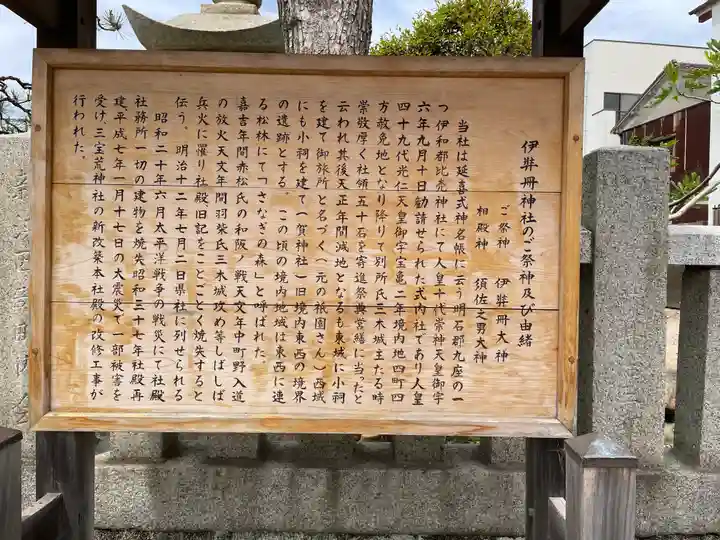 伊弉冊神社のご祭神及び由緒
ご祭神　伊弉冊大神
相殿神　須佐之男大神
当社は延喜式神名帳に云う明石郡九座の一
つ伊和都比売神社にて人皇十代崇神天皇御宇
六年九月十日勧請せられた式内社であり人皇
四十九代光仁天皇御宇宝亀二年境内地四町四
方赦免地となり降りて別所氏三木城主たる時
崇敬厚く社領五十石を寄進祭典営繕に当ったと
云われ其後天正年間減地となるも東域に小祠
を建て御旅所と名づく（元の祇園さん）西域
にも小祠を建て（賀神社）旧境内東西の境界
の遺跡とする。この頃の境内地域は東西に連
る松林にて「さなぎの森」と呼ばれた。
嘉吉年間赤松氏の和阪ノ戦天文年中町野入道
の放火天文年間羽柴氏三木城攻め等しばしば
兵火に罹り社殿旧記をことごとく焼失すると
伝う、明治十二年七月二日県社に列せられる
昭和二十年六月太平洋戦争の戦災にて社殿
社務所一切の建物を焼失昭和三十七年社殿再
建平成七年一月十七日の大震災で一部被害を
受け、三宝荒神社の新改築本社殿の改修工事が
行われた。